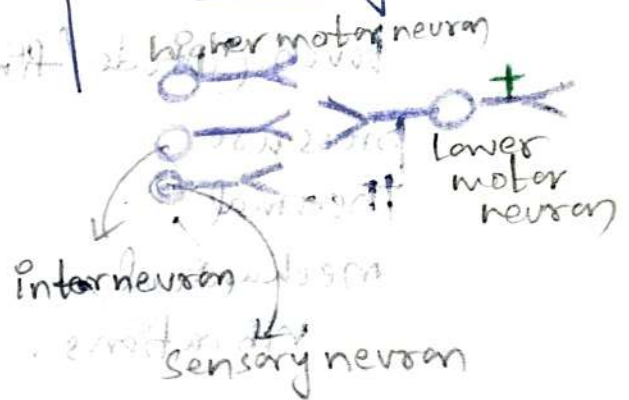 higher motor nevron
+
Lower
motor
nevron
internevron
Sensory nevron